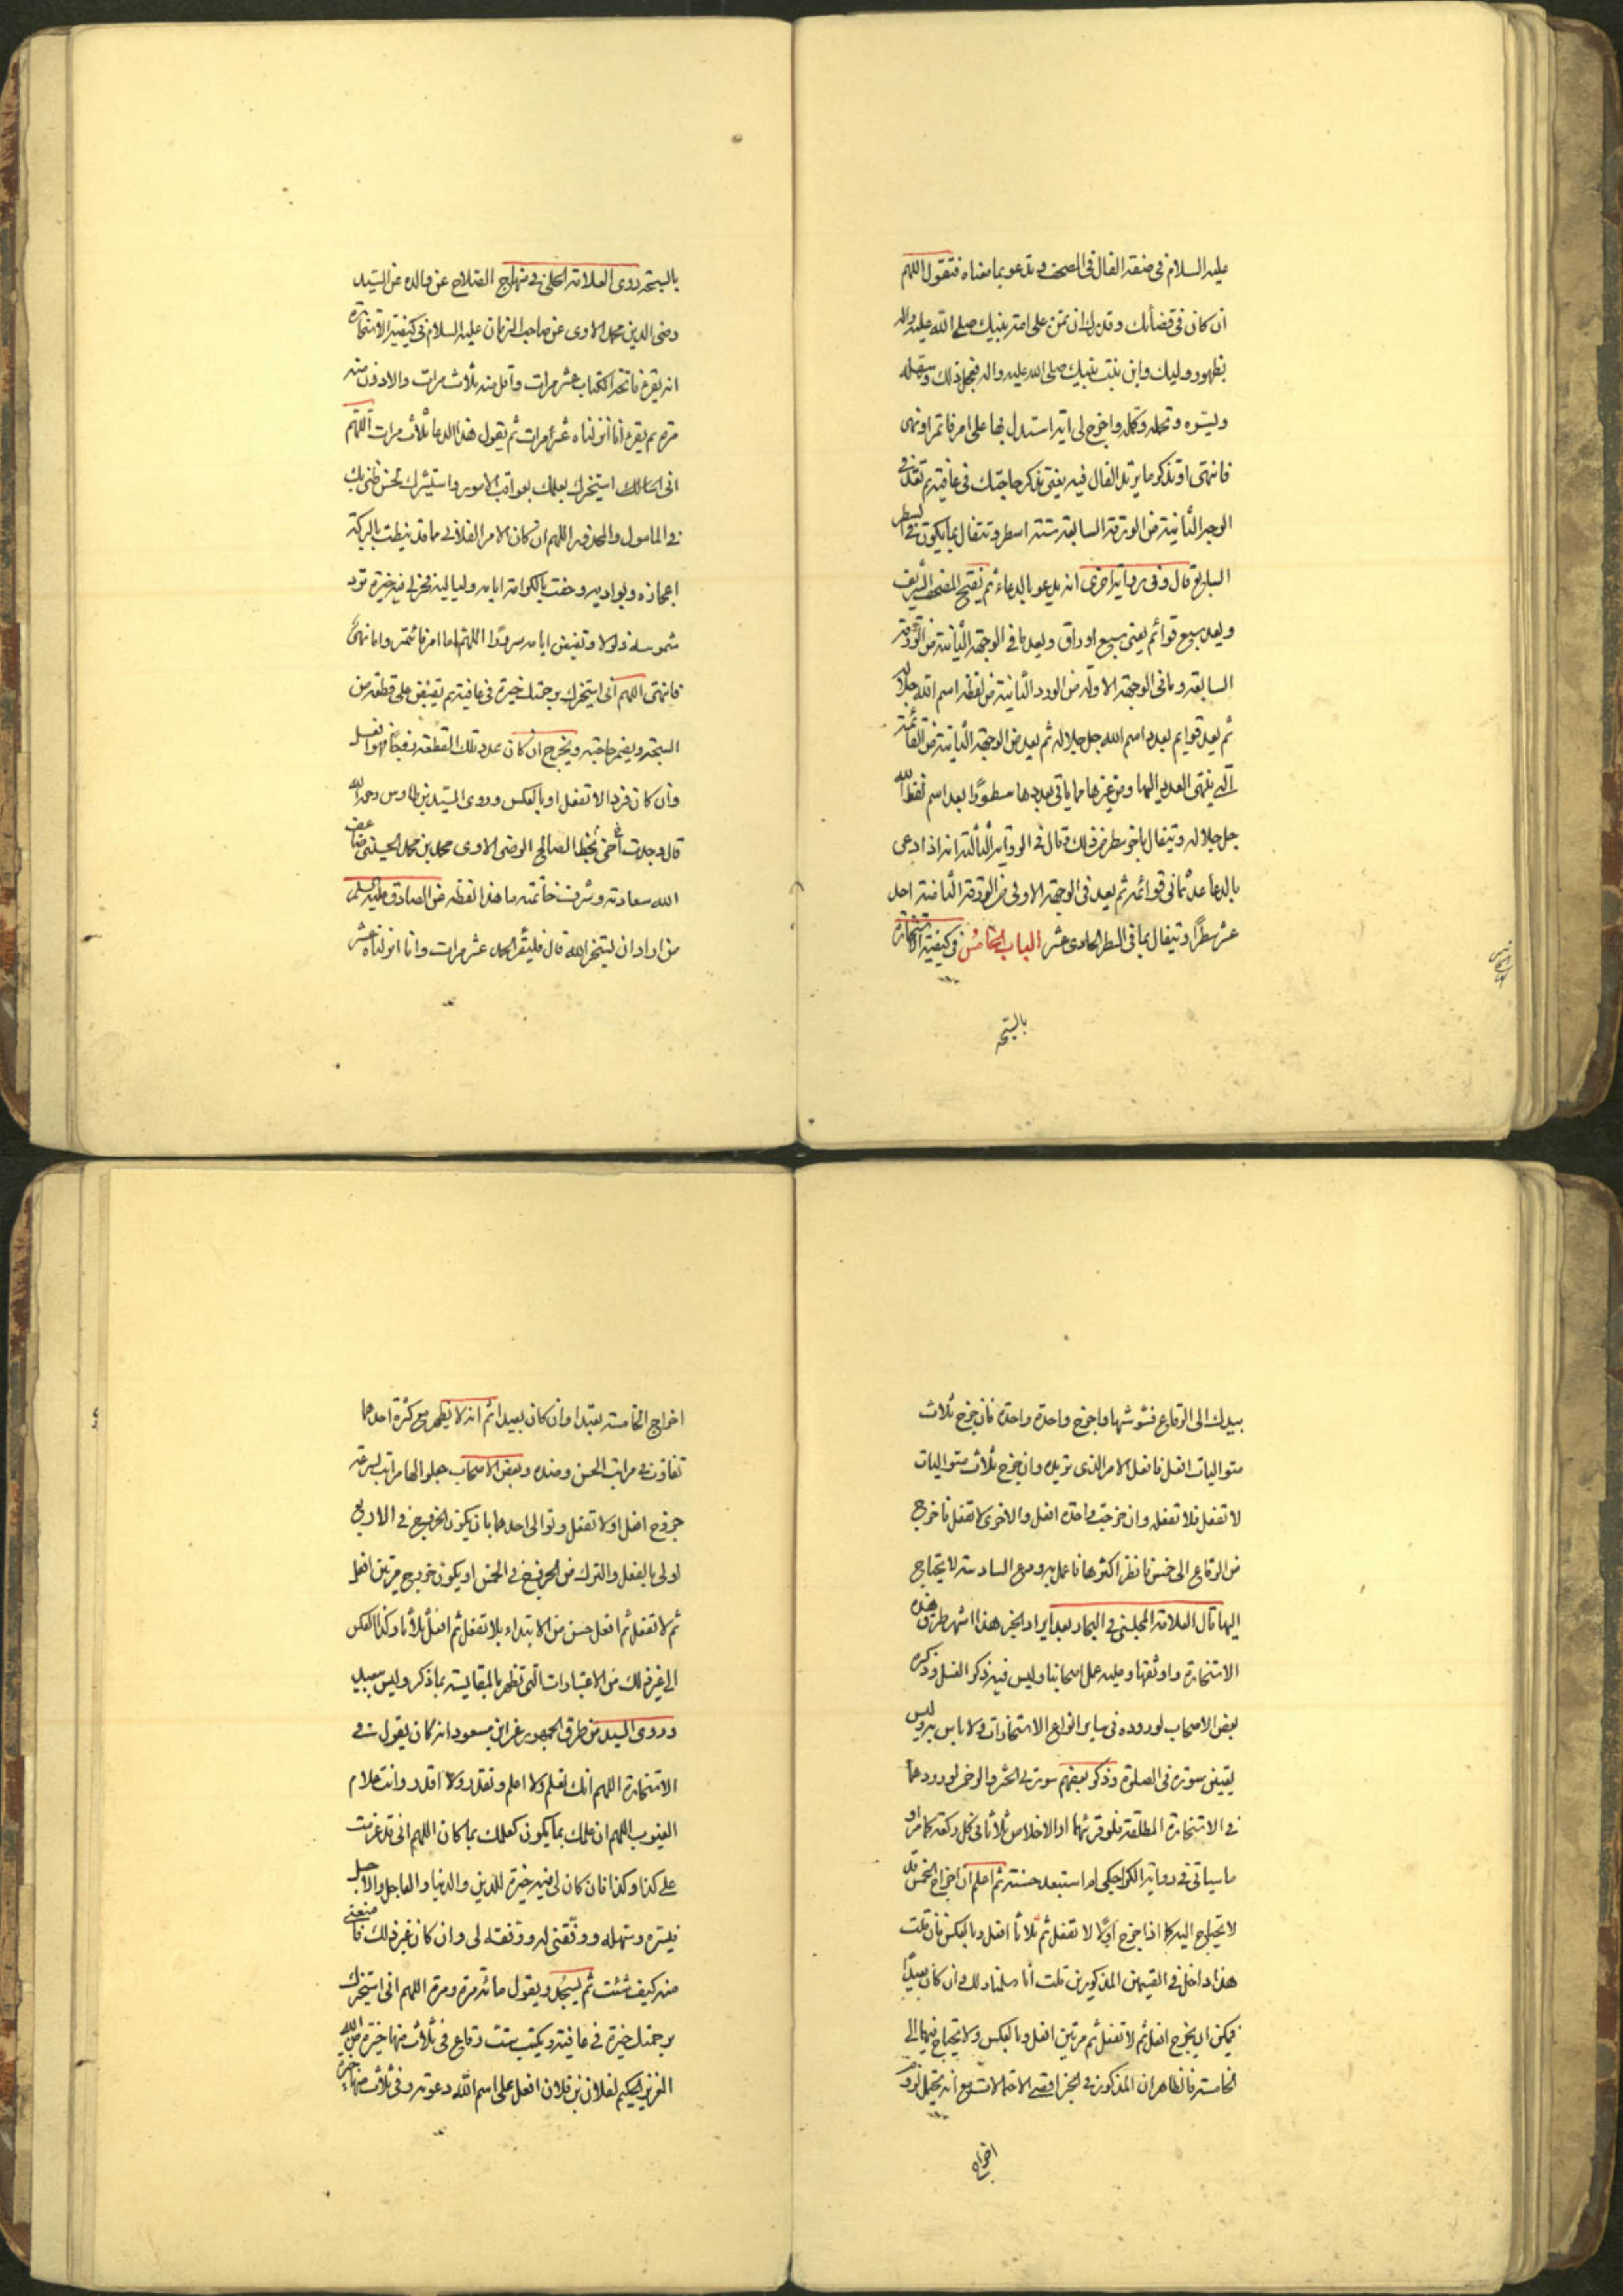 عليه السلام في صفة الفال في المصحف وتدعو بما معناه فتقول اللهم
ان كان في قضائك وقدرك ان تمن على امة نبيك صلى الله عليه واله
بظهور وليك وابن بنت نبيك صلى الله عليه واله فعجل ذلك وسهله
ويسره وكمله واخرج لي اية استدل بها على امر فائتمر او نهي
فانتهي او تذكر ما تريد الفال فيه يعني تذكر حاجتك في عافية ثم تعد في
الوجه الثانية من الورقة السابعة ستة اسطر وتتفال بما يكون في السطر
السابع قال وفي رواية اخرى انه يدعو بالدعاء ثم يفتح المصحف الشريف
ويعد سبع قوائم يعني سبع اوراق ويعد ما في الوجهة الثانية من الورقة
السابعة وما في الوجهة الاولة من الورد الثانية من لفظة اسم الله جل جلاله
ثم يعد قوايم بعدد اسم الله جل جلاله ثم يعد من الوجهة الثانية من القائمة
التي ينتهي العدد اليها ومن غيرها مما ياتي بعدها سطورا بعدد اسم لفظ الله
جل جلاله ويتفال باخر سطر من ذلك وقال في الرواية الثالثة انه اذا دعى
بالدعا عد ثماني قوائم ثم يعد في الوجهة الاولى من الورقة الثامنة احد
عشر سطرا ويتفال بما في السطر الحادى عشر الباب الخامس في كيفية الاستخارة
بالسبحة
بالسبحة روى العلامة الحلي في منهاج الصلاح عن والده عن السيد
رضى الدين محمد الاوى عن صاحب الزمان عليه السلام في كيفية الاستخارة
انه يقرء فاتحة الكتاب عشر مرات واقل منه ثلاث مرات والادون منه
مرة ثم يقرء انا انزلناه عشر مرات ثم يقول هذا الدعا ثلاث مرات اللهم
انى استخيرك بعلمك بعواقب الامور واستشيرك لحسن ظنى بك
في المامول والمحذور اللهم ان كان الامر الفلاني مما قد نيطت بالبركة
اعجازه وبواديه وحفت بالكرامة ايامه ولياليه فخر لي فيه خيرة ترد
شموسه ذلولا وتقيض ايامه سرورا اللهم اما امر فائتمر واما نهي
فانتهى اللهم انى استخيرك برحمتك خيرة في عافية ثم تقبض على قطعة من
السبحة ويضمر حاجته ويخرج ان كان عدد تلك القطعة زوجا فهو افعل
وان كان فردا لا تفعل او بالعكس وروى السيد بن طاوس رحمه الله
قال وجدت بخط اخى الصالح الرضى الاوى محمد بن محمد الحسينى ضاعف
الله سعادته وشرف خاتمته ما هذا لفظه عن الصادق عليه السلم
من اراد ان يستخير الله قال فليقرء الحمد عشر مرات وانا انزلناه عشر
بيدك الى الرقاع فشوشها واخرج واحدة واحدة فان خرج ثلاث
متواليات افعل فافعل الامر الذى تريده وان خرج ثلاث متواليات
لا تفعل فلا تفعله وان خرجت واحدة افعل والاخرى لا تفعل فاخرج
من الرقاع الى خمس فانظر اكثرها فاعمل به ودع السادسة لا يحتاج
اليها قال العلامة المجلسى في البحار بعد ايراد الخبر هذا اشهر طرق هذه
الاستخارة واوثقها وعليه عمل اصحابنا وليس فيه ذكر الغسل وذكره
بعض الاصحاب لوروده في ساير انواع الاستخارات ولا باس به وليس
تعيين سورة في الصلوة وذكر بعضهم سورتى الحشر والرحمن لورودهما
في الاستخارة المطلقة فلو قرئهما او الاخلاص ثلاثا في كل ركعة كما مر او
ما سياتى في رواية الكراجكى استبعد حسنه ثم اعلم ان اخراج الخمس قد
لا يحتاج اليه كما اذا خرج اولا لا تفعل ثم ثلاثا افعل وبالعكس فان قلت
هذا داخل في القسمين المذكورين قلت ان سلمنا ذلك وان كان بعيدا
فيمكن ان يخرج افعل ثم لا تفعل ثم مرتين افعل وبالعكس ولا يحتاج فيها الى
الخامسة فالظاهر ان المذكور في الخبر اقصى الاحتمالات مع انه يحتمل لزوم
اخراج
اخراج الخامسة تعبدا وان كان بعيدا ثم انه لا يظهر مع كثرة احدهما
تفاوت في مراتب الحسن وضده وبعض الاصحاب جعلوا لها مراتب لسرعة
خروج افعل او لا تفعل وتوالى احدهما بان يكون الخروج في الاربع
اولى بالفعل والترك من الخروج في الخمس او يكون خروج مرتين افعل
ثم لا تفعل ثم افعل احسن من الابتداء بلا تفعل ثم افعل ثلاثا وكذا العكس
الى غير ذلك من الاعتبارات التى تظهر بالمقايسة بما ذكر وليس ببعيد
وروى السيد من طرق الجمهور عن ابن مسعود انه كان يقول في
الاستخارة اللهم انك تعلم ولا اعلم وتقدر ولا اقدر وانت علام
الغيوب اللهم ان علمك بما يكون كعلمك بما كان اللهم انى قد عزمت
على كذا وكذا فان كان لى فيه خيرة للدين والدنيا والعاجل والاجل
فيسره وسهله ووفقنى له ووفقه لى وان كان غير ذلك فامنعنى
منه كيف شئت ثم يسجد ويقول مائة مرة ومرة اللهم انى استخيرك
برحمتك خيرة في عافية ويكتب ست رقاع في ثلاث منها خيرة من الله
العزيز الحكيم لفلان بن فلان افعل على اسم الله وعونه وفى ثلاث منها خيرة